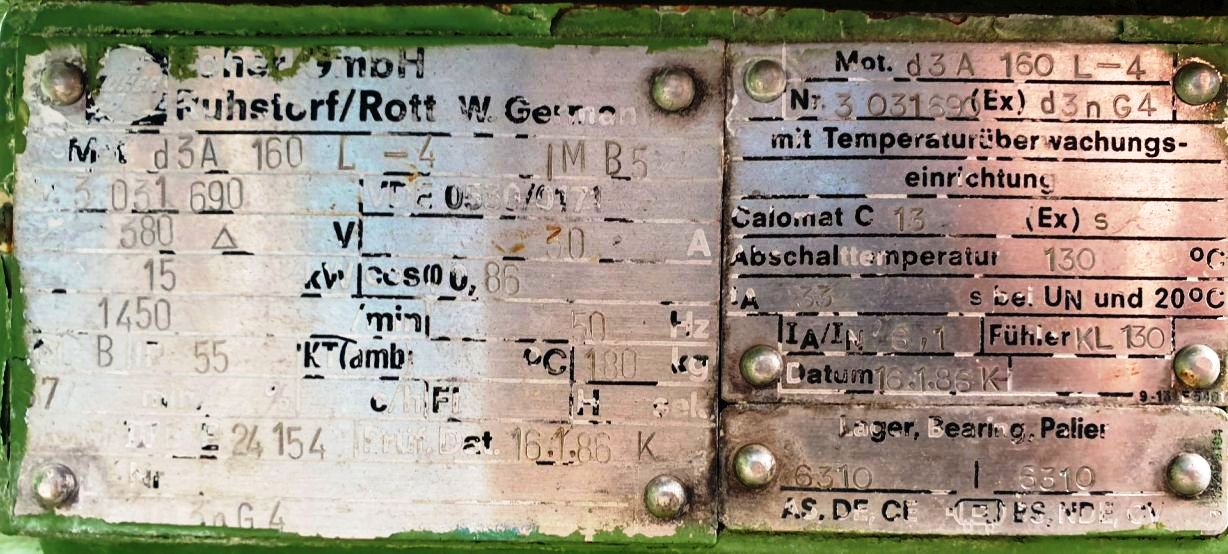 GmbH
Ruhstorf/Rott W. German
Mot d3A 160 L -4 IM B5
3 031 690 VDE 0530/0171
380 △ V 30 A
15 kW cosφ 0,86
1450 /min 50 Hz
B 55 KT (amb: °C 180 kg
c/h FI H
24 154 Prüf. Dat. 16.1.86 K
3nG4
Mot. d3A 160 L-4
Nr. 3 031690 (Ex) d3nG4
mit Temperaturüberwachungs-
einrichtung
Calomat C 13 (Ex) s
Abschalttemperatur 130 °C
tA 33 s bei UN und 20°C
IA/IN 6,1 Fühler KL 130
Datum 16.1.86 K
Lager, Bearing, Palier
6310 | 6310
AS, DE, CE BS, NDE, CV